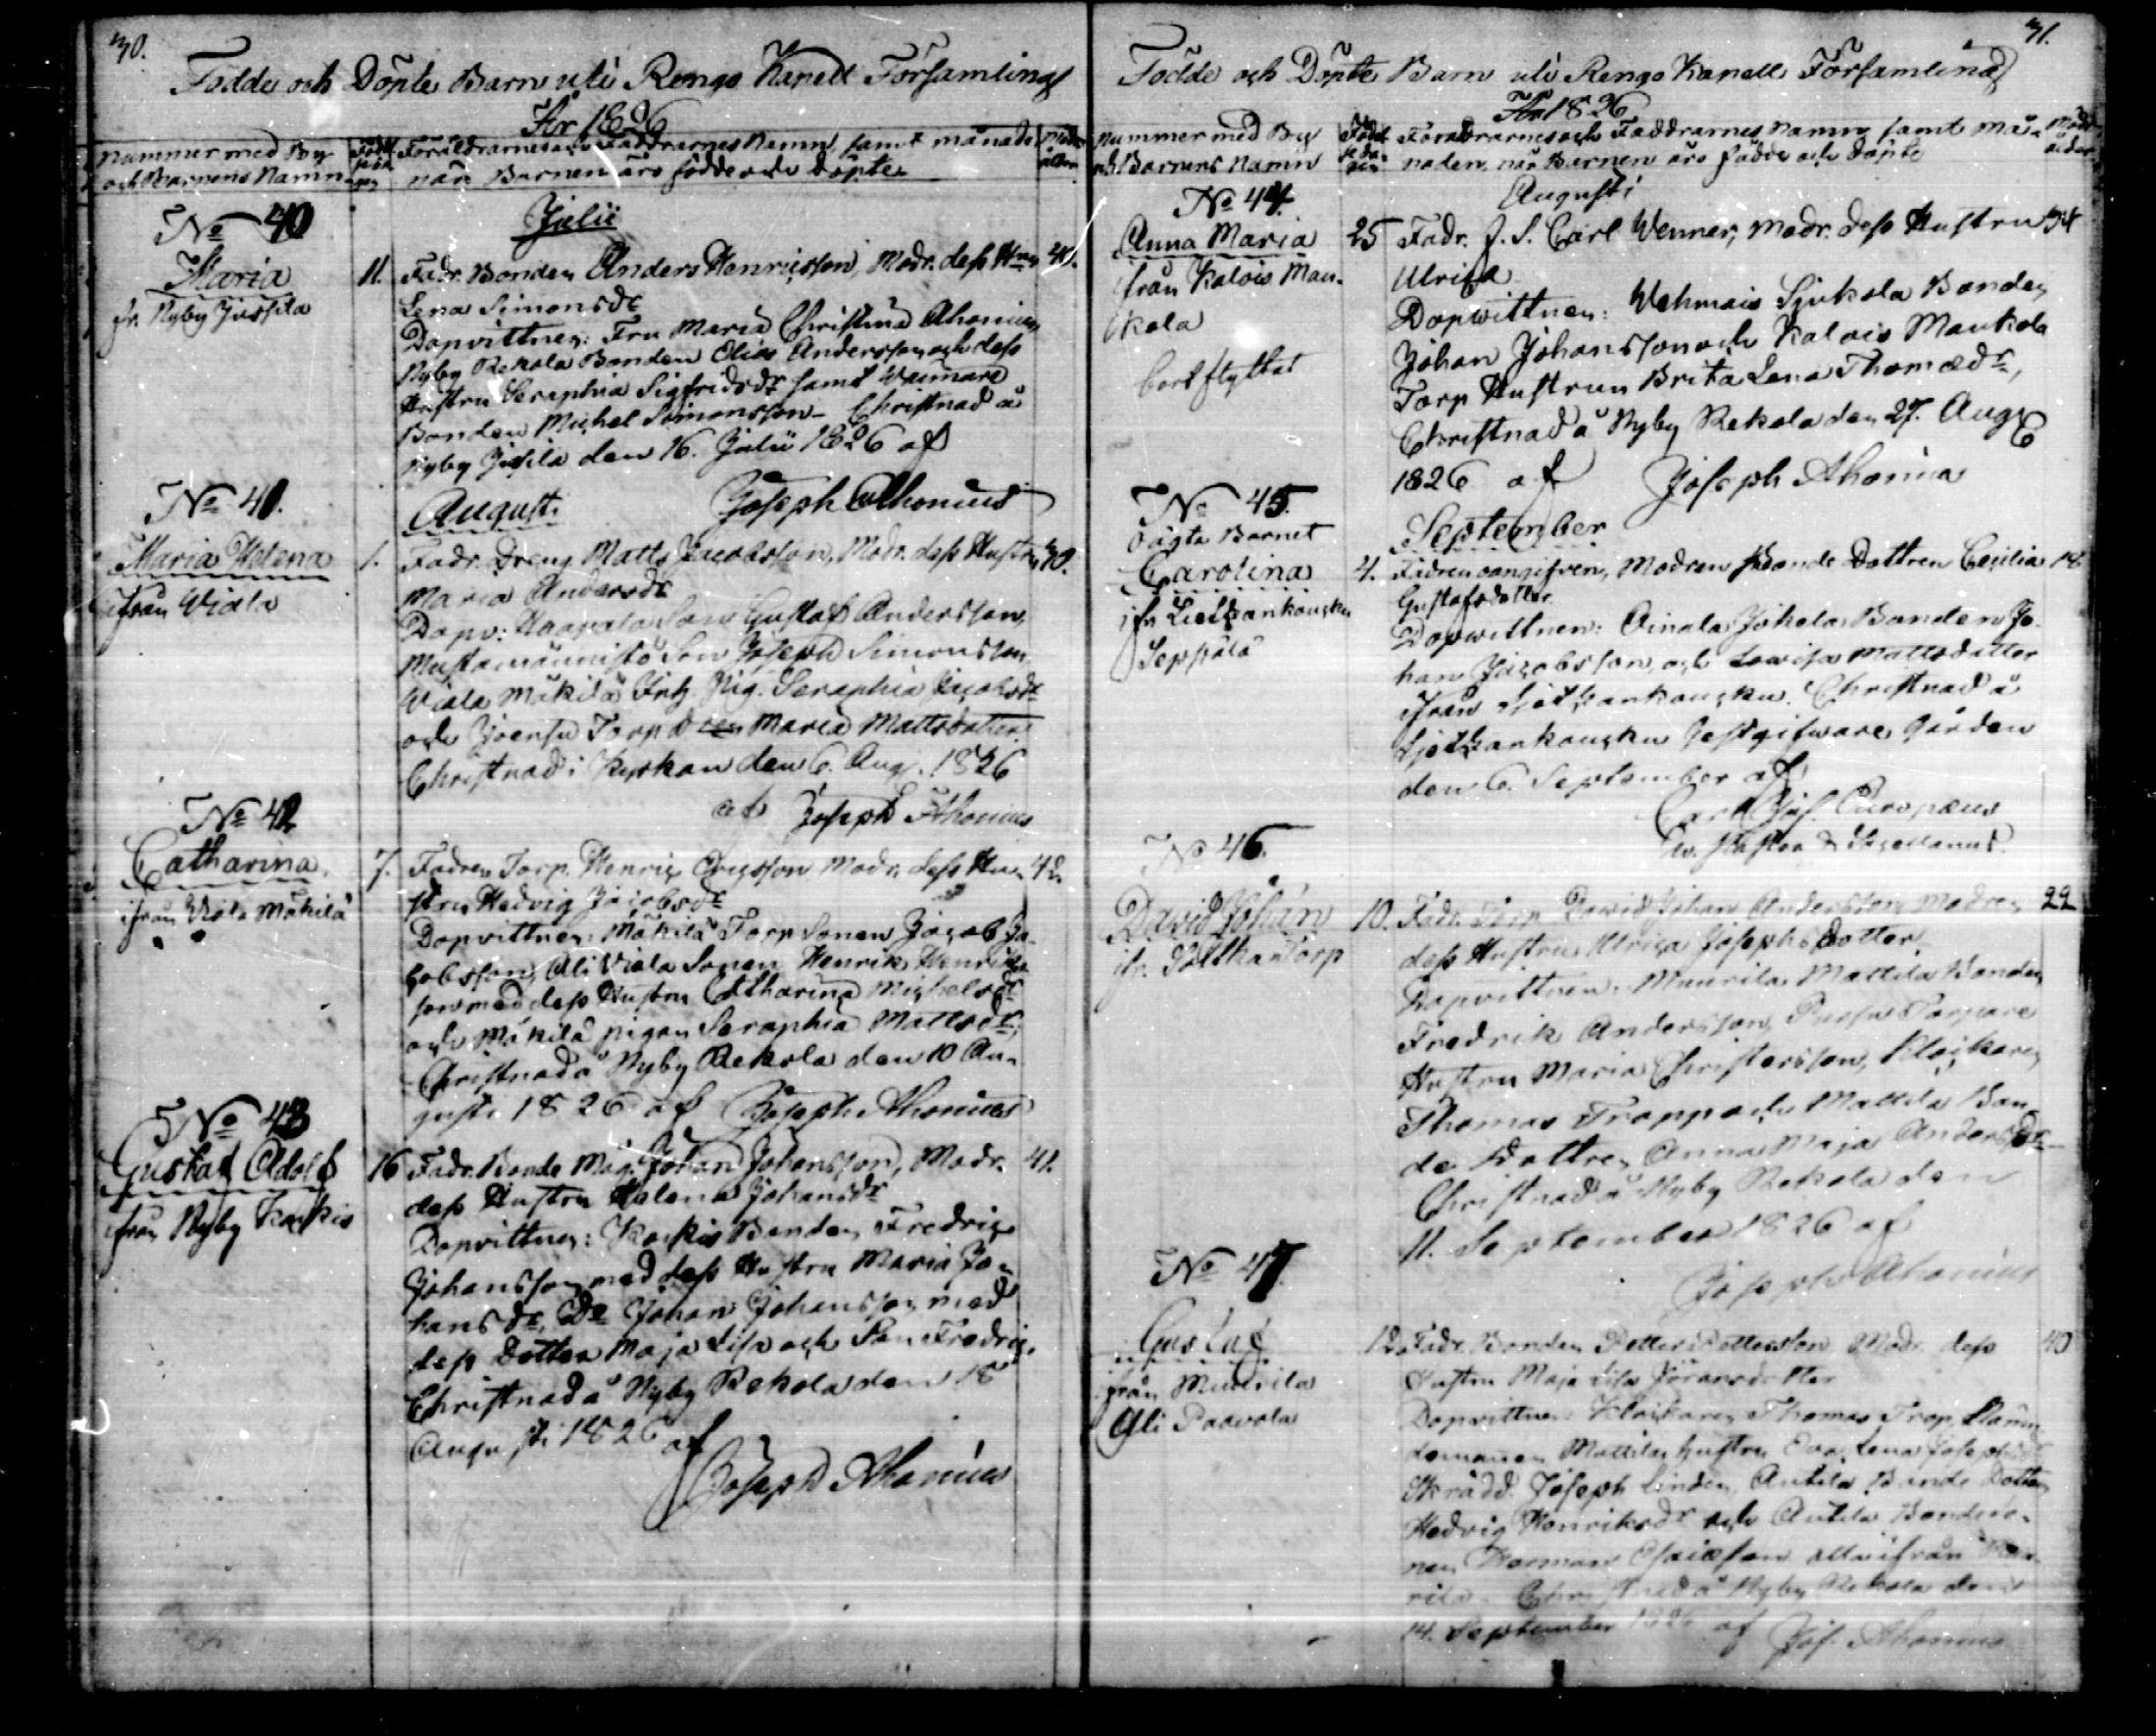 30.
Födde och Döpte Barn uti Rengo Kapell Församling
År 1826
Nummer med By och Barnens Namn
Föräldrarnes och Faddrarnes Namn, samt månade
när Barnen äro födde och döpte
Julii
No 40
Maria
fr. Nyby Jussila
11. Fadr. Bonden Anders Henricsson, Modr. dess Hu 40.
Lena Simonsdr
Dopvittnen: Fru Maria Christina Ahonius,
Nyby Rekola Bonden Elias Andersson och dess
Hustru Seraphia Sigfridsdr samt
Bonden Michel Simonsson - Christnad å
Nyby Jussila den 16. Julii 1826 af
Joseph Ahonius
Augusti
No 41.
Maria Helena
ifrån Wiala
1. Fadr. Dreng Matts Jacobsson, Modr. dess Hustru 30.
Maria Andersdr
Dopv: Haapala Son Gustaf Andersson,
Mustamännistö Son Joseph Simonsson
Wiala Mäkilä Pig. Seraphia Jacobsdr
och Torp Maria Mattsdotter.
Christnad i Kyrkan den 6. Aug. 1826
af Joseph Ahonius
No 42
Catharina,
ifrån Viala Mäkilä
7. Fadren Torp. Henric Ericsson Modr. dess Hu- 42.
stru Hedvig Jacobsdr
Dopvittnen: Mäkilä Torp Sonen Jacob Ja-
cobsson, Ali Viala Sonen Henrik Henriks
son med dess Hustru Catharina Michelsdr
och Mäkilä pigan Seraphia Mattsdr,
Christnad å Nyby Rekola den 10 Au-
gusti 1826 af Joseph Ahonius
No 43
Gustaf Adolf
ifrån Nyby Karkis
16 Fadr. Bonde Måg. Johan Johansson, Modr. 41.
dess Hustru Helena Johansdr
Dopvittnen: Karkis Bonden Fredric
Johansson med dess Hustru Maria Jo-
hansdr, Do Johan Johansson med
dess Dotter Maja Lisa och Son Fredric,
Christnad å Nyby Rekola den 18
Augusti 1826 af
Joseph Ahonius
31.
Födde och Döpte Barn uti Rengo Kapell Församling
År 1826
Nummer med By och Barnens Namn
Föräldrarnes och Faddrarnes Namn samt må-
naden när Barnen äro födde och döpte
Augusti
No 44.
Anna Maria
ifrån Kalois Man-
kola
bortflyttat
25 Fadr. J. S. Carl Wenner, Modr. dess Hustru 34
Ulrica
Dopvittnen: Wehmais Sjukola Bonden
Johan Johansson och Kalois Mankola
Torp Hustrun Brita Lena Thomædr,
Christnad å Nyby Rekola den 27. Aug
1826 af Joseph Ahonius
September
No 45.
Oägta Barnet
Carolina
Seppälä
4. Fadren oangifven, Modren Bonde Dottren Cecilia 18
Gustafsdotter
Dopwittnen: Oinala Jokela Bonden Jo-
han Jacobsson, och Lowisa Mattsdotter
Christnad å
Gestgifware Gården
den 6. September af
Carl Gust. Europæus
No 46.
David Johan
Torp
10. Fadr. Torp David Johan Andersson Modren 22
dess Hustru Ulrica Josephsdotter
Dopvittnen. Muurila Mattila Bonden
Fredrik Andersson, Torpare
Hustru Maria Christersson, Klockaren
Thomas Tropp och Mattila Bon
de Dottren Anna Maja Andersdr
Christnad å Nyby Rekola den
11. September 1826 af
Joseph Ahonius
No 47.
Gustaf
ifrån Muurila
Yli Paavola
12. Fadr. Bonden Petter Pettersson Modr. dess 40
Hustru Maja Lisa Jöransdotter
Dopvittnen Klockaren Thomas Trop,
Mattila Hustru Eva Lena Josephsdr
Skrädd. Joseph Linden, Antila Bonde Dotter
Hedvig Henriksdr och Antila Bondeso-
nen Herman alla ifrån Muu-
rila. Christnad å Nyby Rekola den
14. September 1826 af Jos. Ahonius